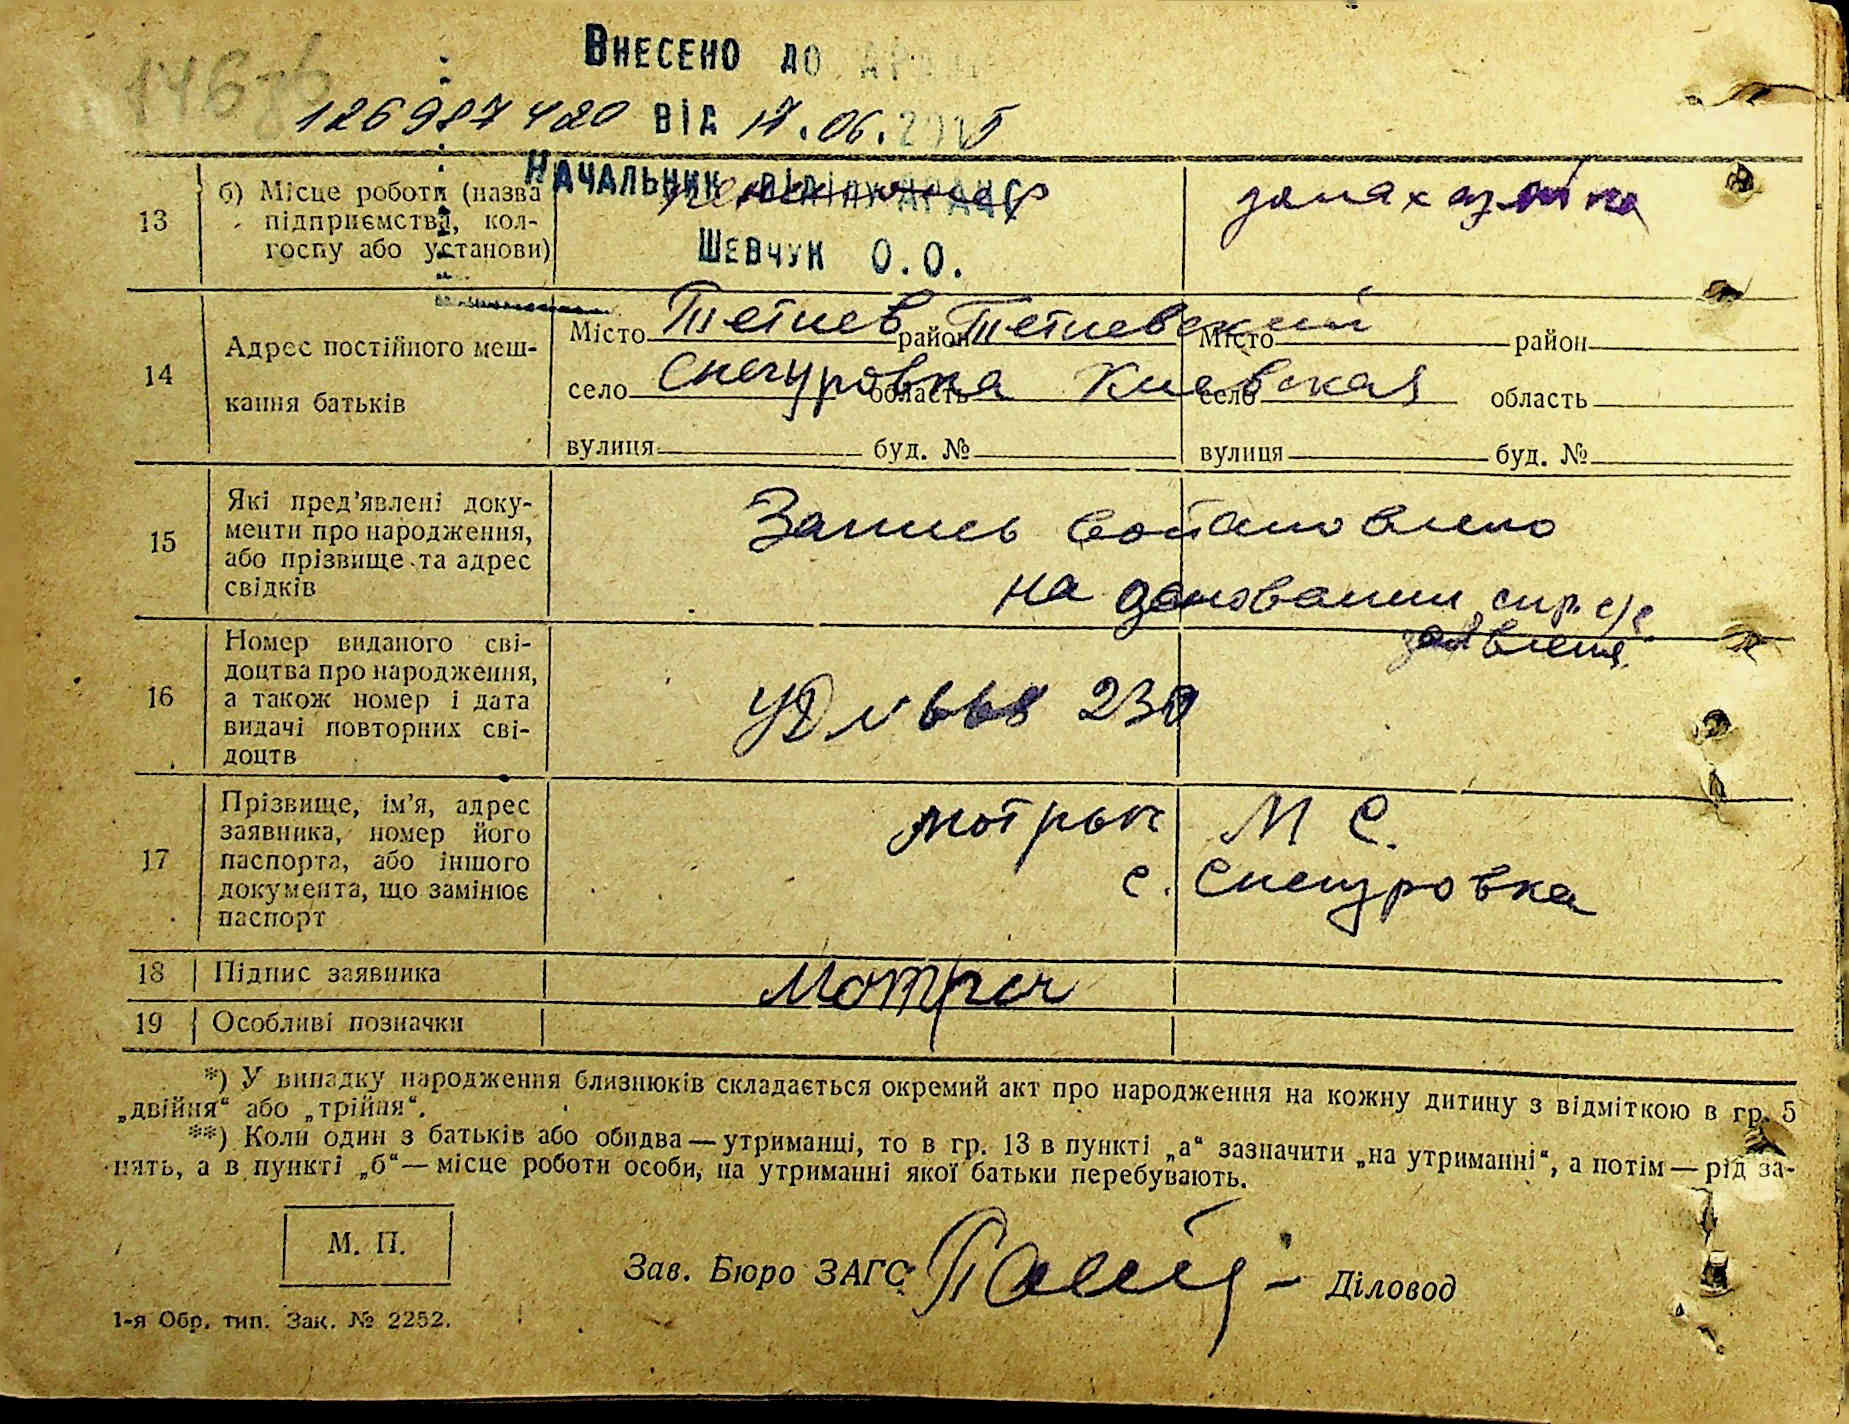 146зв
Внесено до ДРАЦС
126987420 від 17.06.2015
Начальник відділу ДРАЦС
Шевчук О.О.
13 б) Місце роботи (назва підприємства, колгоспу або установи)
14 Адрес постійного меш-
кання батьків
Місто Тетиев район Тетиевский Місто район
село Снегуровка область Киевская село область
вулиця буд. № вулиця буд. №
15 Які пред'явлені доку-
менти про народження,
або прізвище та адрес
свідків
Запись востановлено
на основании спр. с/с
заявления
16 Номер виданого сві-
доцтва про народження,
а також номер і дата
видачі повторних сві-
доцтв
УЮ № 668 230
17 Прізвище, ім'я, адрес
заявника, номер його
паспорта, або іншого
документа, що замінює
паспорт
Мотрыч М С.
с. Снегуровка
18 Підпис заявника Мотрич
19 Особливі позначки
*) У випадку народження близнюків складається окремий акт про народження на кожну дитину з відміткою в гр. 5
„двійня“ або „трійня“.
**) Коли один з батьків або обидва — утриманці, то в гр. 13 в пункті „а“ зазначити „на утриманні“, а потім — рід за-
нять, а в пункті „б“ — місце роботи особи, на утриманні якої батьки перебувають.
М. П.
Зав. Бюро ЗАГС Діловод
1-я Обр. тип. Зак. № 2252.